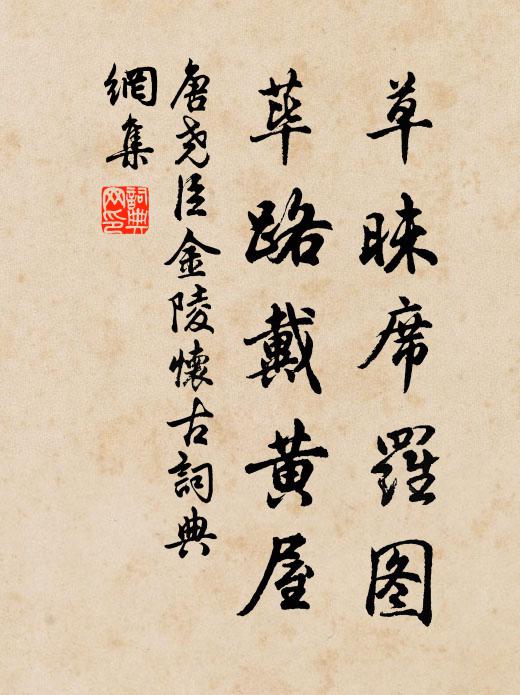 草昧席羅图
荜路戴黄屋
唐尧臣金陵懷古詞典
網集
詞典網印